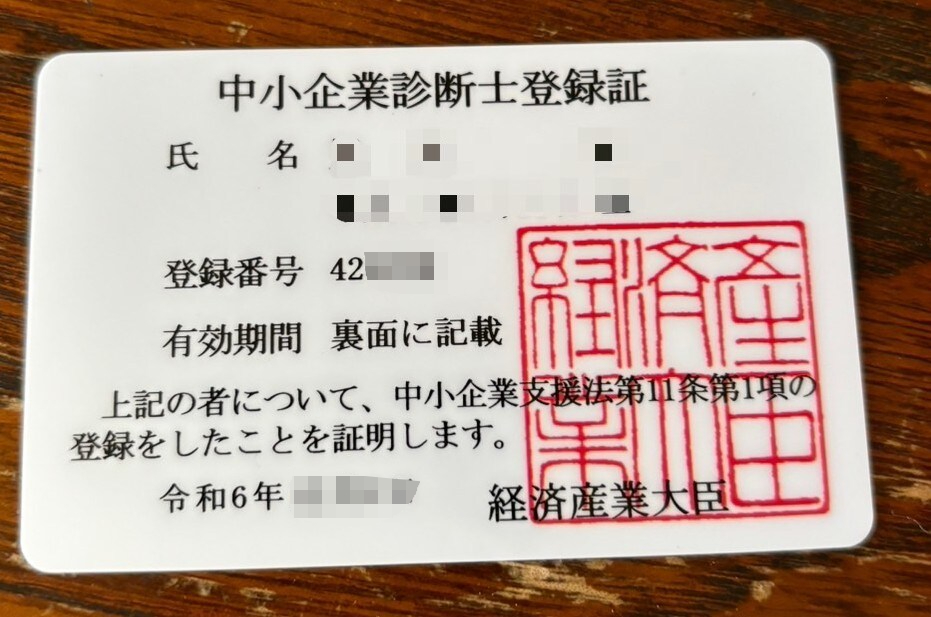 中小企業診断士登録証
氏 名
登録番号 42
有効期間 裏面に記載
上記の者について、中小企業支援法第11条第1項の
登録をしたことを証明します。
令和6年
経済産業大臣
経済産業大臣